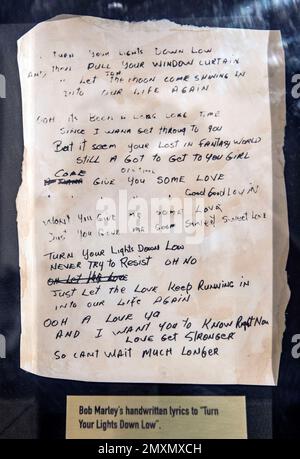 Turn Your Lights Down Low
And then Pull Your Window Curtain
" Let Jah the Moon Come Shining In
Into Our Life Again
Ooh its Been a Long Long Time
Since I wana get throug to you
But it seem your lost in fantasy world
Still a Got to Get to You Girl
Come
Give You Some Love
Good Good Lovin
Wont You Give me Some Love
Just You Give me Good Sweet Sweet Love
Turn Your Lights Down Low
Never Try to Resist Oh No
Oh Let the Love
Just Let the Love Keep Running in
into our Life Again
Ooh A Love Ya
And I want you to Know Right Now
Love Get Stronger
So cant wait much longer
Bob Marley's handwritten lyrics to "Turn
Your Lights Down Low".
alamy
Image ID: 2MXMXCH
www.alamy.com